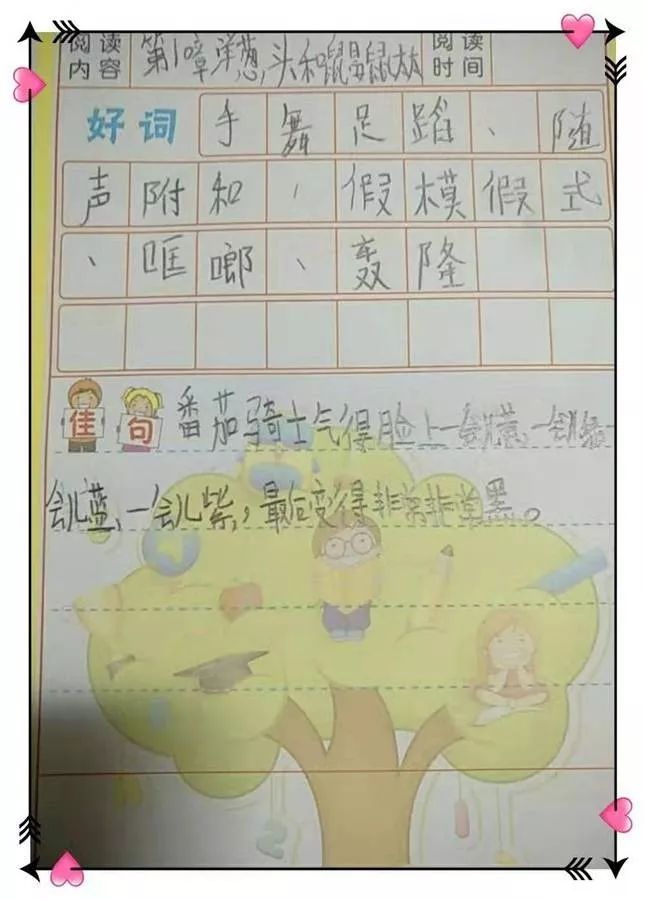 阅读 第1 洋葱,头和鼹鼠 阅读
内容 时间
好词 手舞足蹈、随
声附和、假模假式
、哐啷、轰隆
佳句 番茄骑士气得脸上一会儿 、一会儿绿一
会儿蓝、一会儿紫，最后变得非常非常黑。